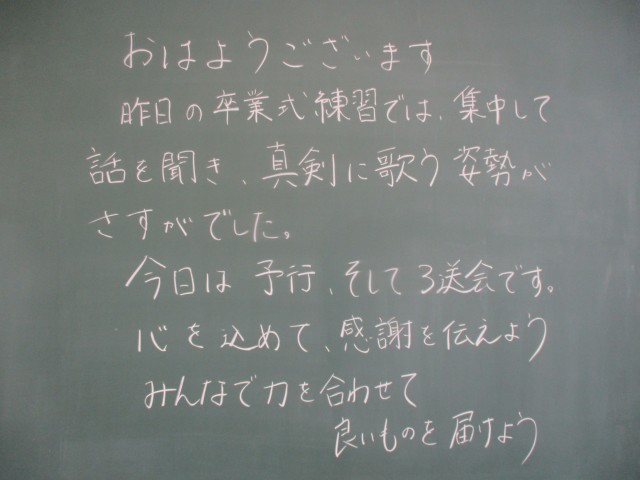 おはようございます
昨日の卒業式練習では、集中して
話を聞き、真剣に歌う姿勢が
さすがでした。
今日は予行、そして3送会です。
心を込めて、感謝を伝えよう
みんなで力を合わせて
良いものを届けよう